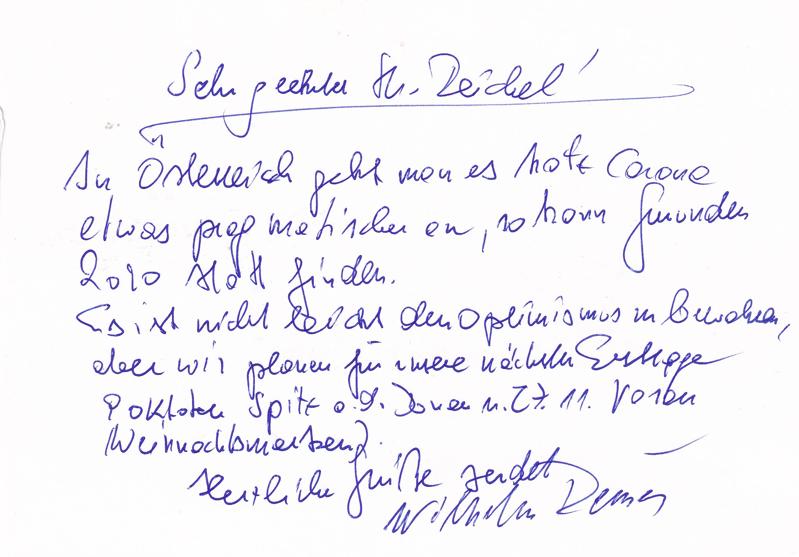 Sehr geehrter Hr. Reichel!
In Österreich geht man es trotz Corona
etwas pragmatischer an, so kann Gmunden
2020 statt finden.
Es ist nicht leicht den Optimismus zu bewahren,
aber wir planen für unsere nächsten Ersttage
Spitz a.d. Donau u. 27.11.
Weihnachtsmarken).
Herzliche Grüße sendet
Wilhelm